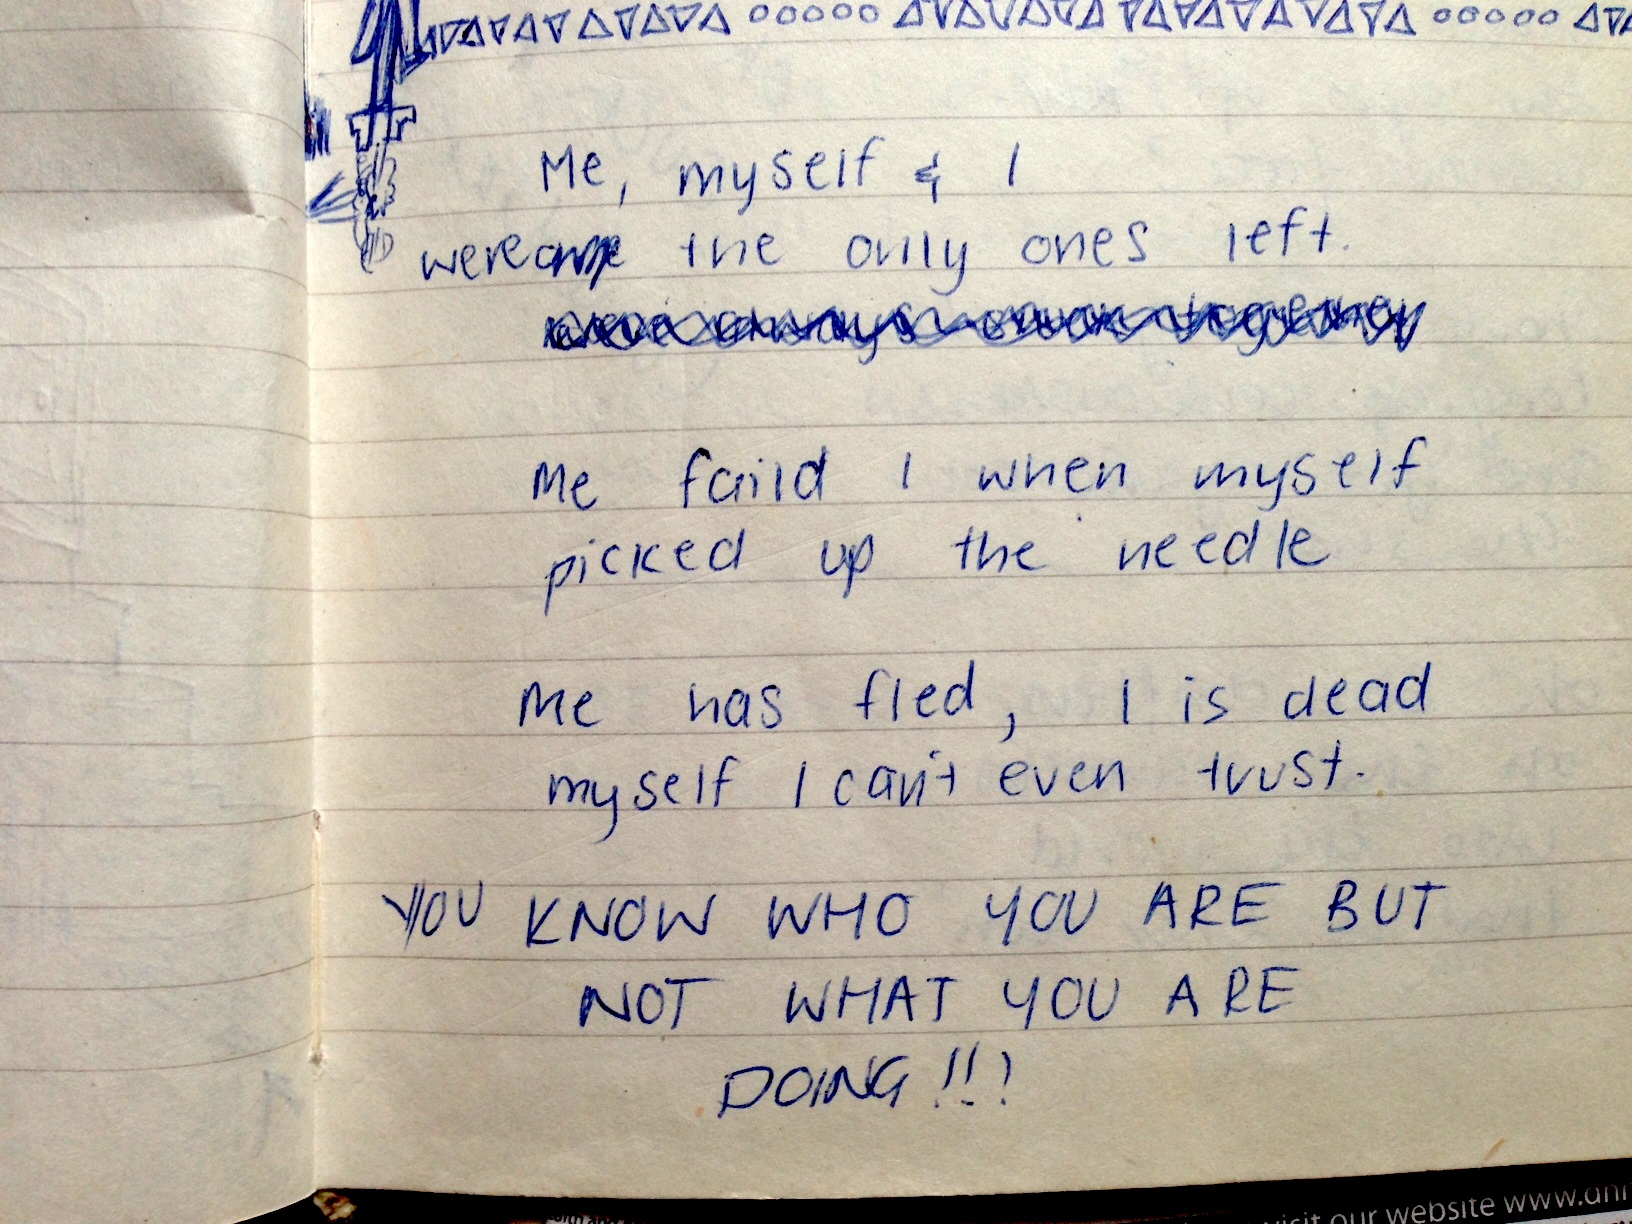 Me, myself & I
were the only ones left.
Me faild I when myself
picked up the needle
Me has fled, I is dead
myself I can't even trust.
YOU KNOW WHO YOU ARE BUT
NOT WHAT YOU ARE
DOING!!?
visit our website www.